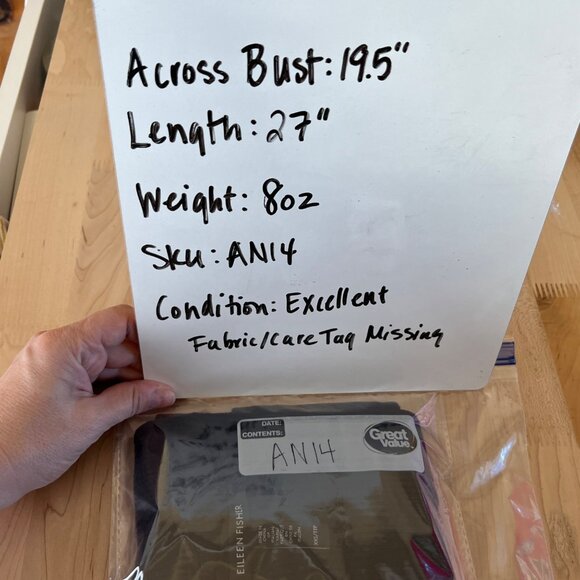 Across Bust: 19.5"
Length: 27"
Weight: 8oz
Sku: AN14
Condition: Excellent
Fabric/Care Tag Missing
DATE:
CONTENTS:
AN14
Great Value
EILEEN FISHER